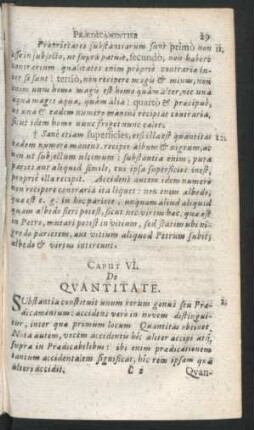 PRÆDICAMENTIS 29
Proprietates substantiarum sunt primò non 11.
esse in subjecto, ut supra patuit, secundò, non habere
contrarium qualitates enim propriè contraria in-
ter se sunt: tertiò, non recipere magis & minus, non
enim unus homo magis est homo quàm alter, nec una
aqua magis aqua, quàm alia: quartò & præcipuè,
ut una & eadem numero manens recipiat contraria,
sicut idem homo nunc friget nunc calet.
† Sanè etiam superficies, ex. illa est quantitas 12.
eadem numero manens, recipit album & nigrum, at
non ut subjectum ultimum: substantia enim, puta
paries aut aliquid simile, cui ipsa superficies inest,
propriè illa recipit. Accidens autem idem numero
non recipere contraria ita liquet: nec enim albedo,
quæ est e. g. in hoc pariete, unquam aliud aliquid
quàm albedo fieri potest, sicut nec virtus hac, quæ est
in Petro, mutari potest in vitium, sed statim ubi ni-
gredo parietem, aut vitium aliquod Petrum subit,
albedo & virtus intereunt.
CAPUT VI.
De
QVANTITATE.
SUbstantia constituit unum rerum genus seu Præ- 1.
dicamentum: accidens verò in novem distingui-
tur, inter quæ primum locum Quantitas obtinet
Nota autem, vocem accidentis hîc aliter accipi ac
supra in Prædicabilibus: ibi enim prædicationem
tantum accidentalem significat, hîc rem ipsam quæ
alteri accidit. C 2 Qvan-